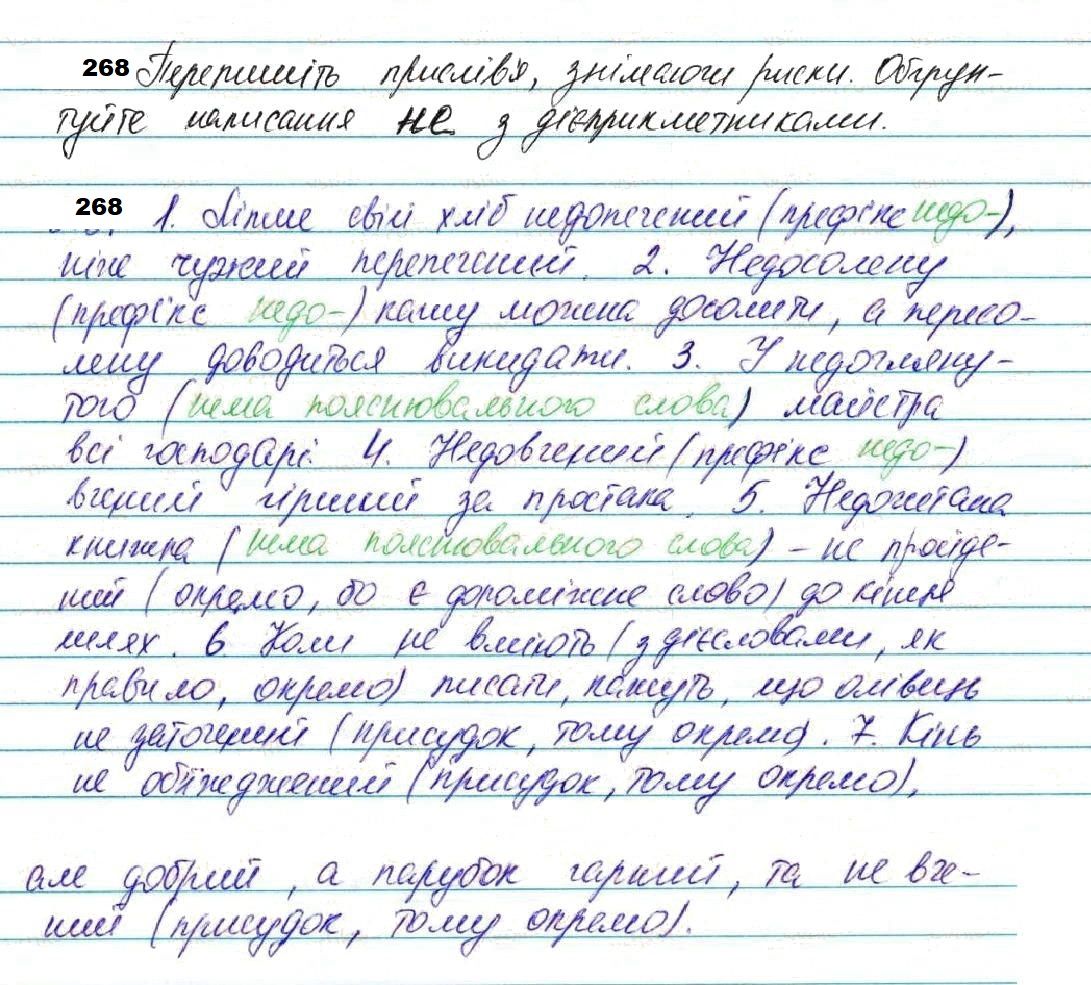 268 Перепишіть прислів'я, знімаючи риски. Обґрун-
туйте написання не з дієприкметниками.
268 1. Ліпше свій хліб недопечений (префікс недо-),
ніж чужий перепечений. 2. Недосолену
(префікс недо-) кашу можна досолити, а пересо-
лену доводиться викидати. 3. У недогляну-
того (нема пояснювального слова) майстра
всі господарі. 4. Недовчений (префікс недо-)
вчений гірший за простака. 5. Недочитана
книжка (нема пояснювального слова) – не пройде-
ний (окремо, бо є допоміжне слово) до кінця
шлях. 6. Коли не вміють (з дієсловами, як
правило, окремо) писати, кажуть, що олівець
не заточений (присудок, тому окремо). 7. Кінь
не об'їжджений (присудок, тому окремо),
але добрий, а парубок гарний, та не вче-
ний (присудок, тому окремо).